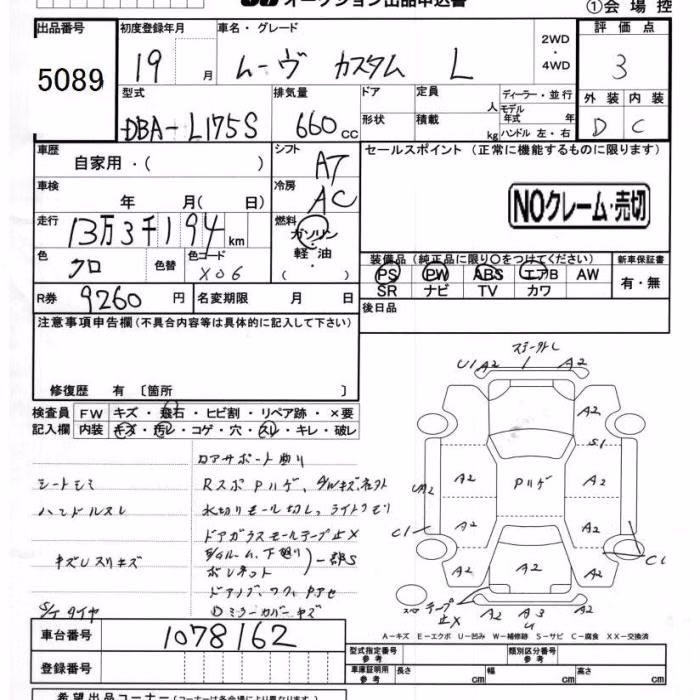 オークション出品申込書
①会場控
出品番号
5089
初度登録年月
19 月
車名・グレード
ムーヴ カスタム L
2WD
・
4WD
評価点
3
外装 内装
D C
型式
DBA-L175S
排気量
660 cc
ドア
形状
定員 人
積載 kg
ディーラー・並行
モデル
年式 年
ハンドル 左・右
車歴
自家用・( )
シフト
AT
セールスポイント (正常に機能するものに限ります)
NOクレーム・売切
車検
年 月(日)
冷房
AC
走行
13万3千194 km
燃料
ガソリン
・
軽油
・
( )
色
クロ
色替
色コード
X06
装備品 (純正品に限り〇をつけてください)
新車保証書
PS PW ABS エアB AW
SR ナビ TV カワ
有・無
R券 9260 円
名変期限 月 日
後日品
注意事項申告欄 (不具合内容等は具体的に記入して下さい)
修復歴 有 〔箇所 〕
検査員
記入欄
FW キズ・飛石・ヒビ割・リペア跡・×要
内装 キズ・汚レ・コゲ・穴・スレ・キレ・破レ
シートシミ
ハンドルスレ
水切りモール切レ、ライトクモリ
ドアガラスモールテープ止X
キズUスリキズ
ボンネット
一部S
S/Tタイヤ
ドアミラーカバーキズ
U1 A2 A2
A2
S1
UA2 A2 Pハゲ A2
C1 A2 A2 C1
A2 A2 A2
テープ止X A2 A3 A2
U
A-キズ E-エクボ U-凹み W-補修跡 S-サビ C-腐食 XX-交換済
車台番号
1078162
登録番号
型式指定番号
参考
類別区分番号
参考
車庫証明用
参考
長さ cm 幅 cm 高さ cm
希望出品コーナー (コーナーは各会場により異なります)